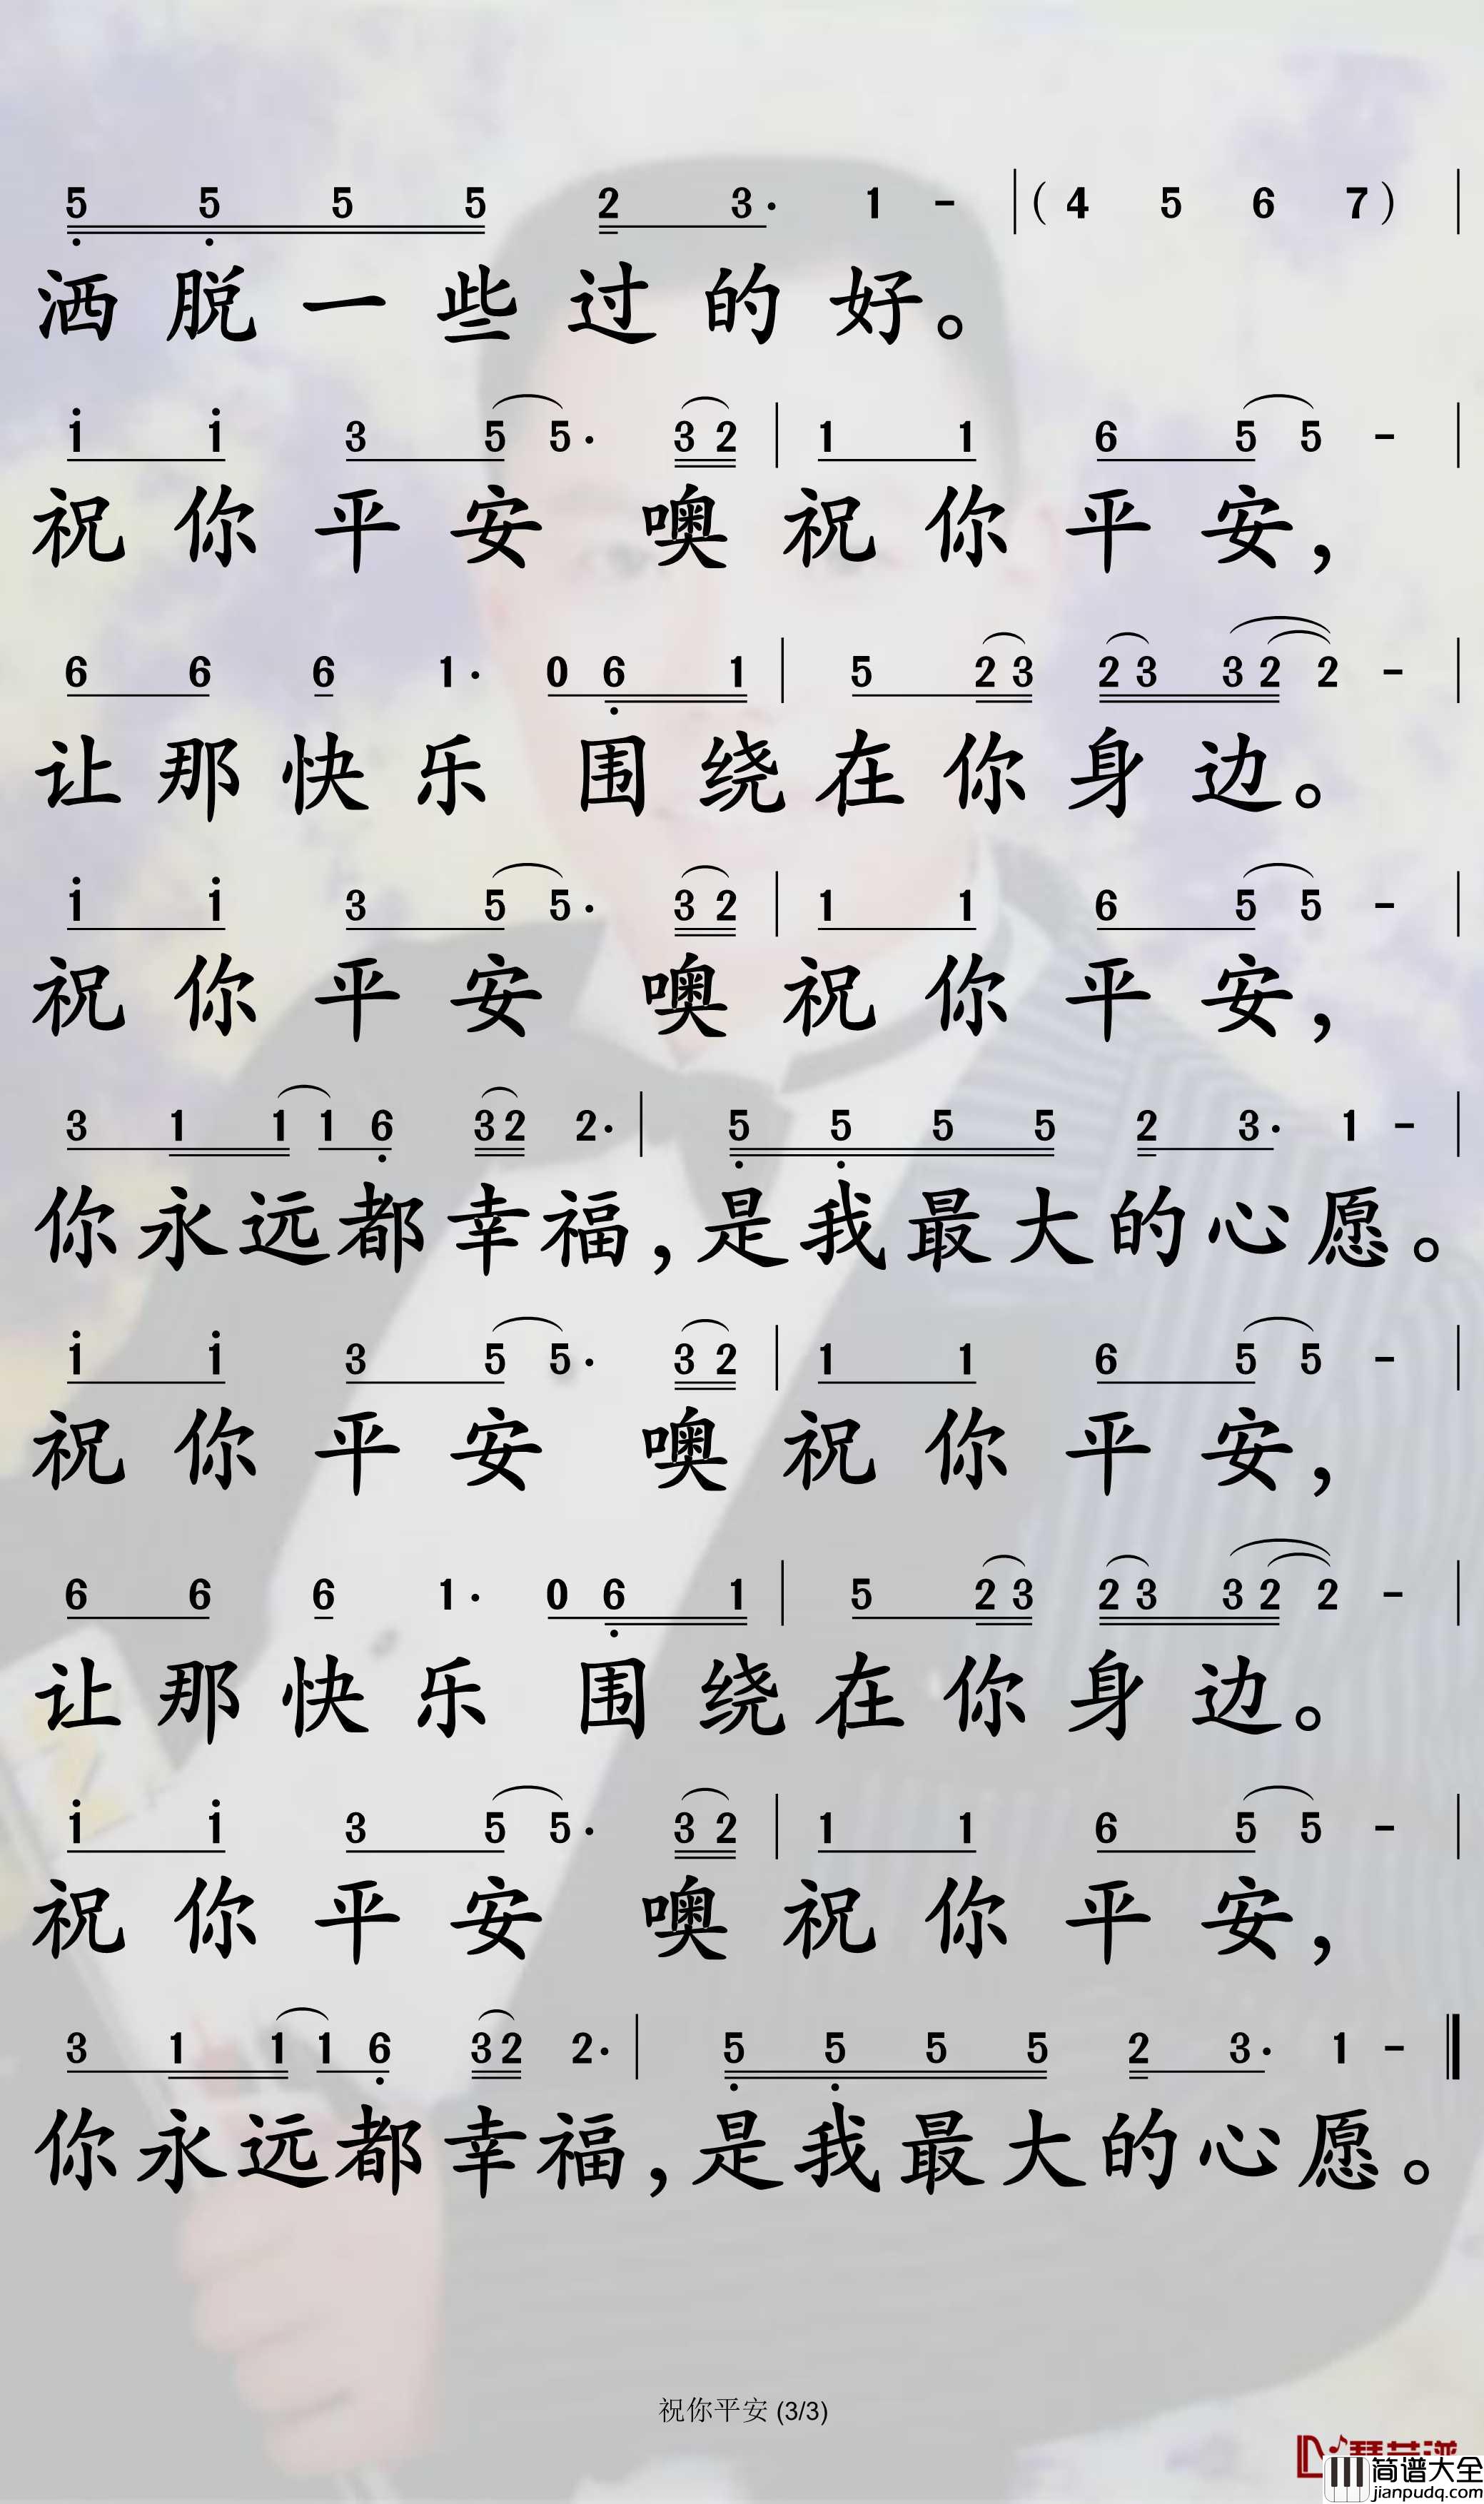 5 5 5 5 2 3· 1 - | ( 4 5 6 7 ) |
洒脱一些过的好。
1 1 3 5 5· 3 2 | 1 1 6 5 5 - |
祝你平安 噢祝你平安,
6 6 6 1· 0 6 1 | 5 2 3 2 3 3 2 2 - |
让那快乐 围绕在你身边。
1 1 3 5 5· 3 2 | 1 1 6 5 5 - |
祝你平安 噢祝你平安,
3 1 1 1 6 3 2 2· | 5 5 5 5 2 3· 1 - |
你永远都幸福,是我最大的心愿。
1 1 3 5 5· 3 2 | 1 1 6 5 5 - |
祝你平安 噢祝你平安,
6 6 6 1· 0 6 1 | 5 2 3 2 3 3 2 2 - |
让那快乐 围绕在你身边。
1 1 3 5 5· 3 2 | 1 1 6 5 5 - |
祝你平安 噢祝你平安,
3 1 1 1 6 3 2 2· | 5 5 5 5 2 3· 1 - ‖
你永远都幸福,是我最大的心愿。
祝你平安 (3/3)
简谱大全
jianpudq.com